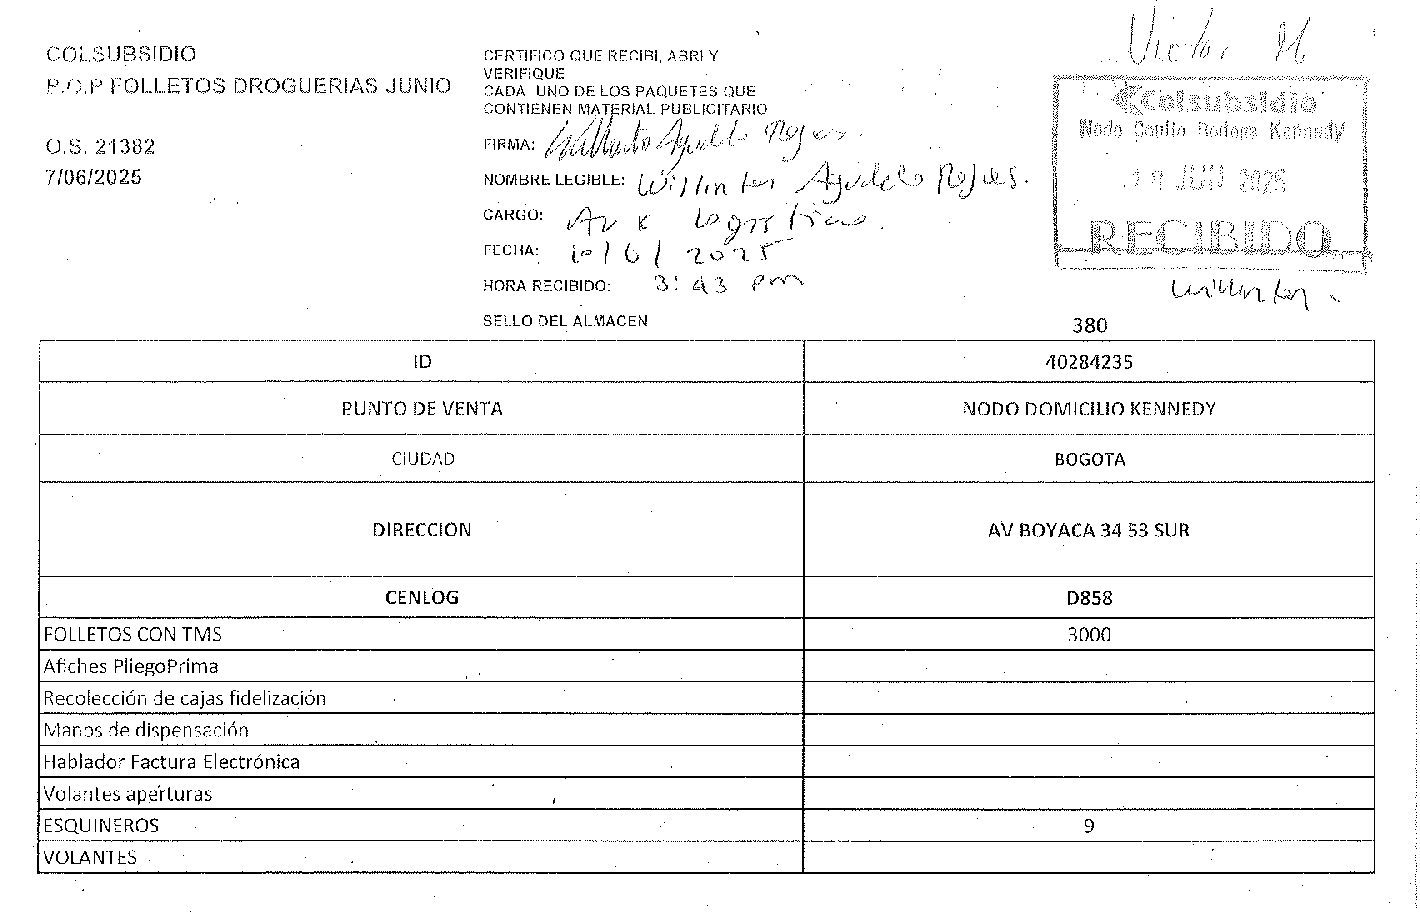 COLSUBSIDIO
P.O.P FOLLETOS DROGUERIAS JUNIO
O.S. 21382
7/06/2025
CERTIFICO QUE RECIBI, ABRI Y
VERIFIQUE
CADA UNO DE LOS PAQUETES QUE
CONTIENEN MATERIAL PUBLICITARIO
FIRMA: Agudelo Rojas.
NOMBRE LEGIBLE: Wilinton Agudelo Rojas.
CARGO: Aux Logistico.
FECHA: 10/6/2025
HORA RECIBIDO: 3:43 pm
SELLO DEL ALMACEN
Victor M
Colsubsidio
Nodo Kennedy
JUN 2025
RECIBIDO
380
ID 40284235
PUNTO DE VENTA NODO DOMICILIO KENNEDY
CIUDAD BOGOTA
DIRECCION AV BOYACA 34 53 SUR
CENLOG D858
FOLLETOS CON TMS 3000
Afiches PliegoPrima
Recolección de cajas fidelización
Manos de dispensación
Hablador Factura Electrónica
Volantes aperturas
ESQUINEROS 9
VOLANTES